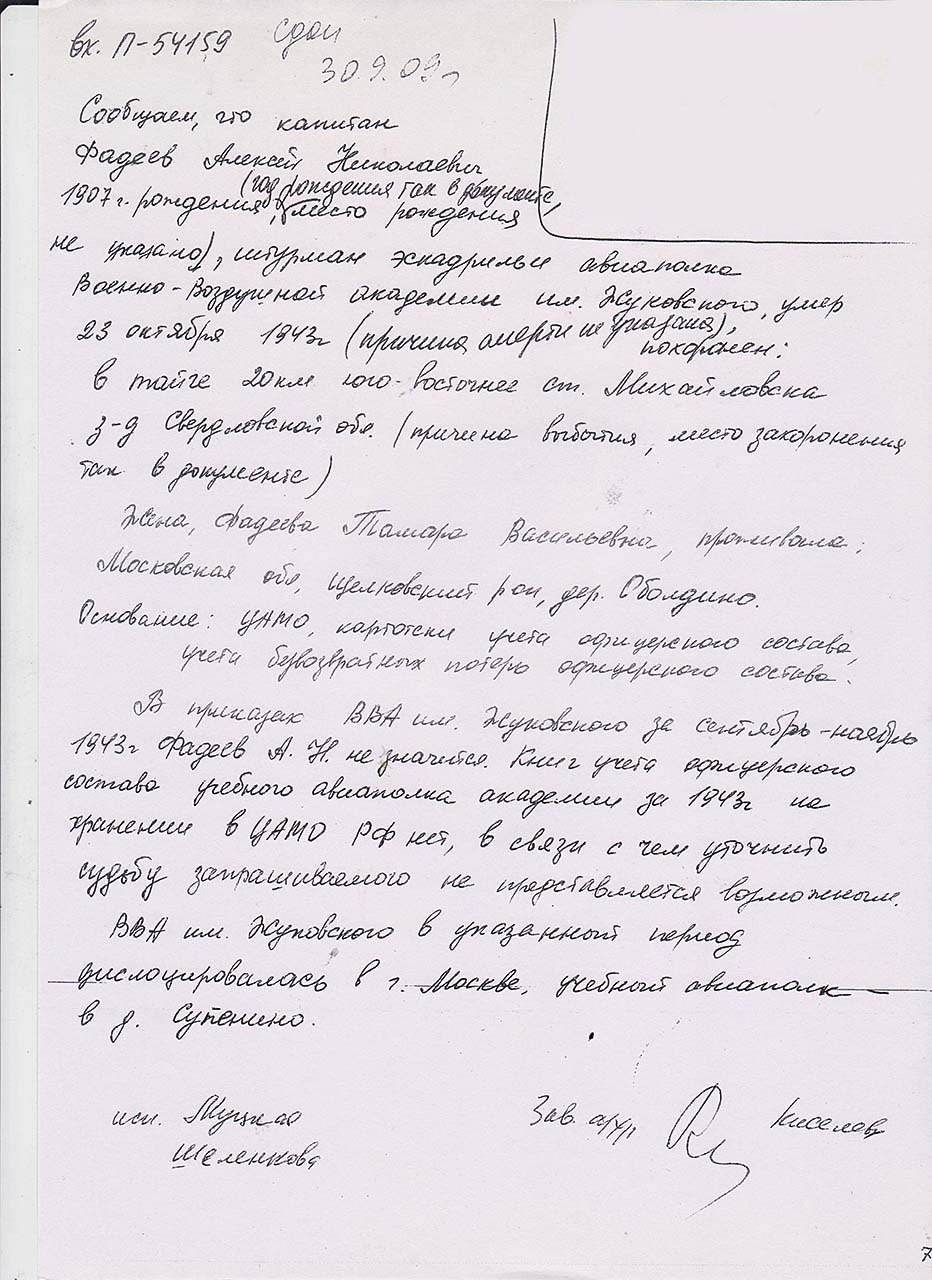 вх. П-54159 сдан
30.9.09г
Сообщаем, что капитан
Фадеев Алексей Николаевич
(год рождения так в документе,
1907 г. рождения, место рождения
не указано), штурман эскадрильи авиаполка
Военно-Воздушной академии им. Жуковского, умер
23 октября 1943г (причина смерти не указана),
похоронен:
в тайге 20км юго-восточнее ст. Михайловска
з-д Свердловской обл. (причина выбытия, место захоронения
так в документе)
Жена, Фадеева Тамара Васильевна, проживала:
Московская обл, Щелковский рон, дер. Оболдино.
Основание: ЦАМО, картотеки учета офицерского состава,
учета безвозвратных потерь офицерского состава.
В приказах ВВА им. Жуковского за сентябрь-ноябрь
1943г Фадеев А. Н. не значится. Книг учета офицерского
состава учебного авиаполка академии за 1943г на
хранении в ЦАМО РФ нет, в связи с чем уточнить
судьбу запрашиваемого не представляется возможным.
ВВА им. Жуковского в указанный период
дислоцировалась в г. Москве, учебный авиаполк
в д. Супенино.
исп. Муцкая Зав. арх Киселев
Шеленкова
7